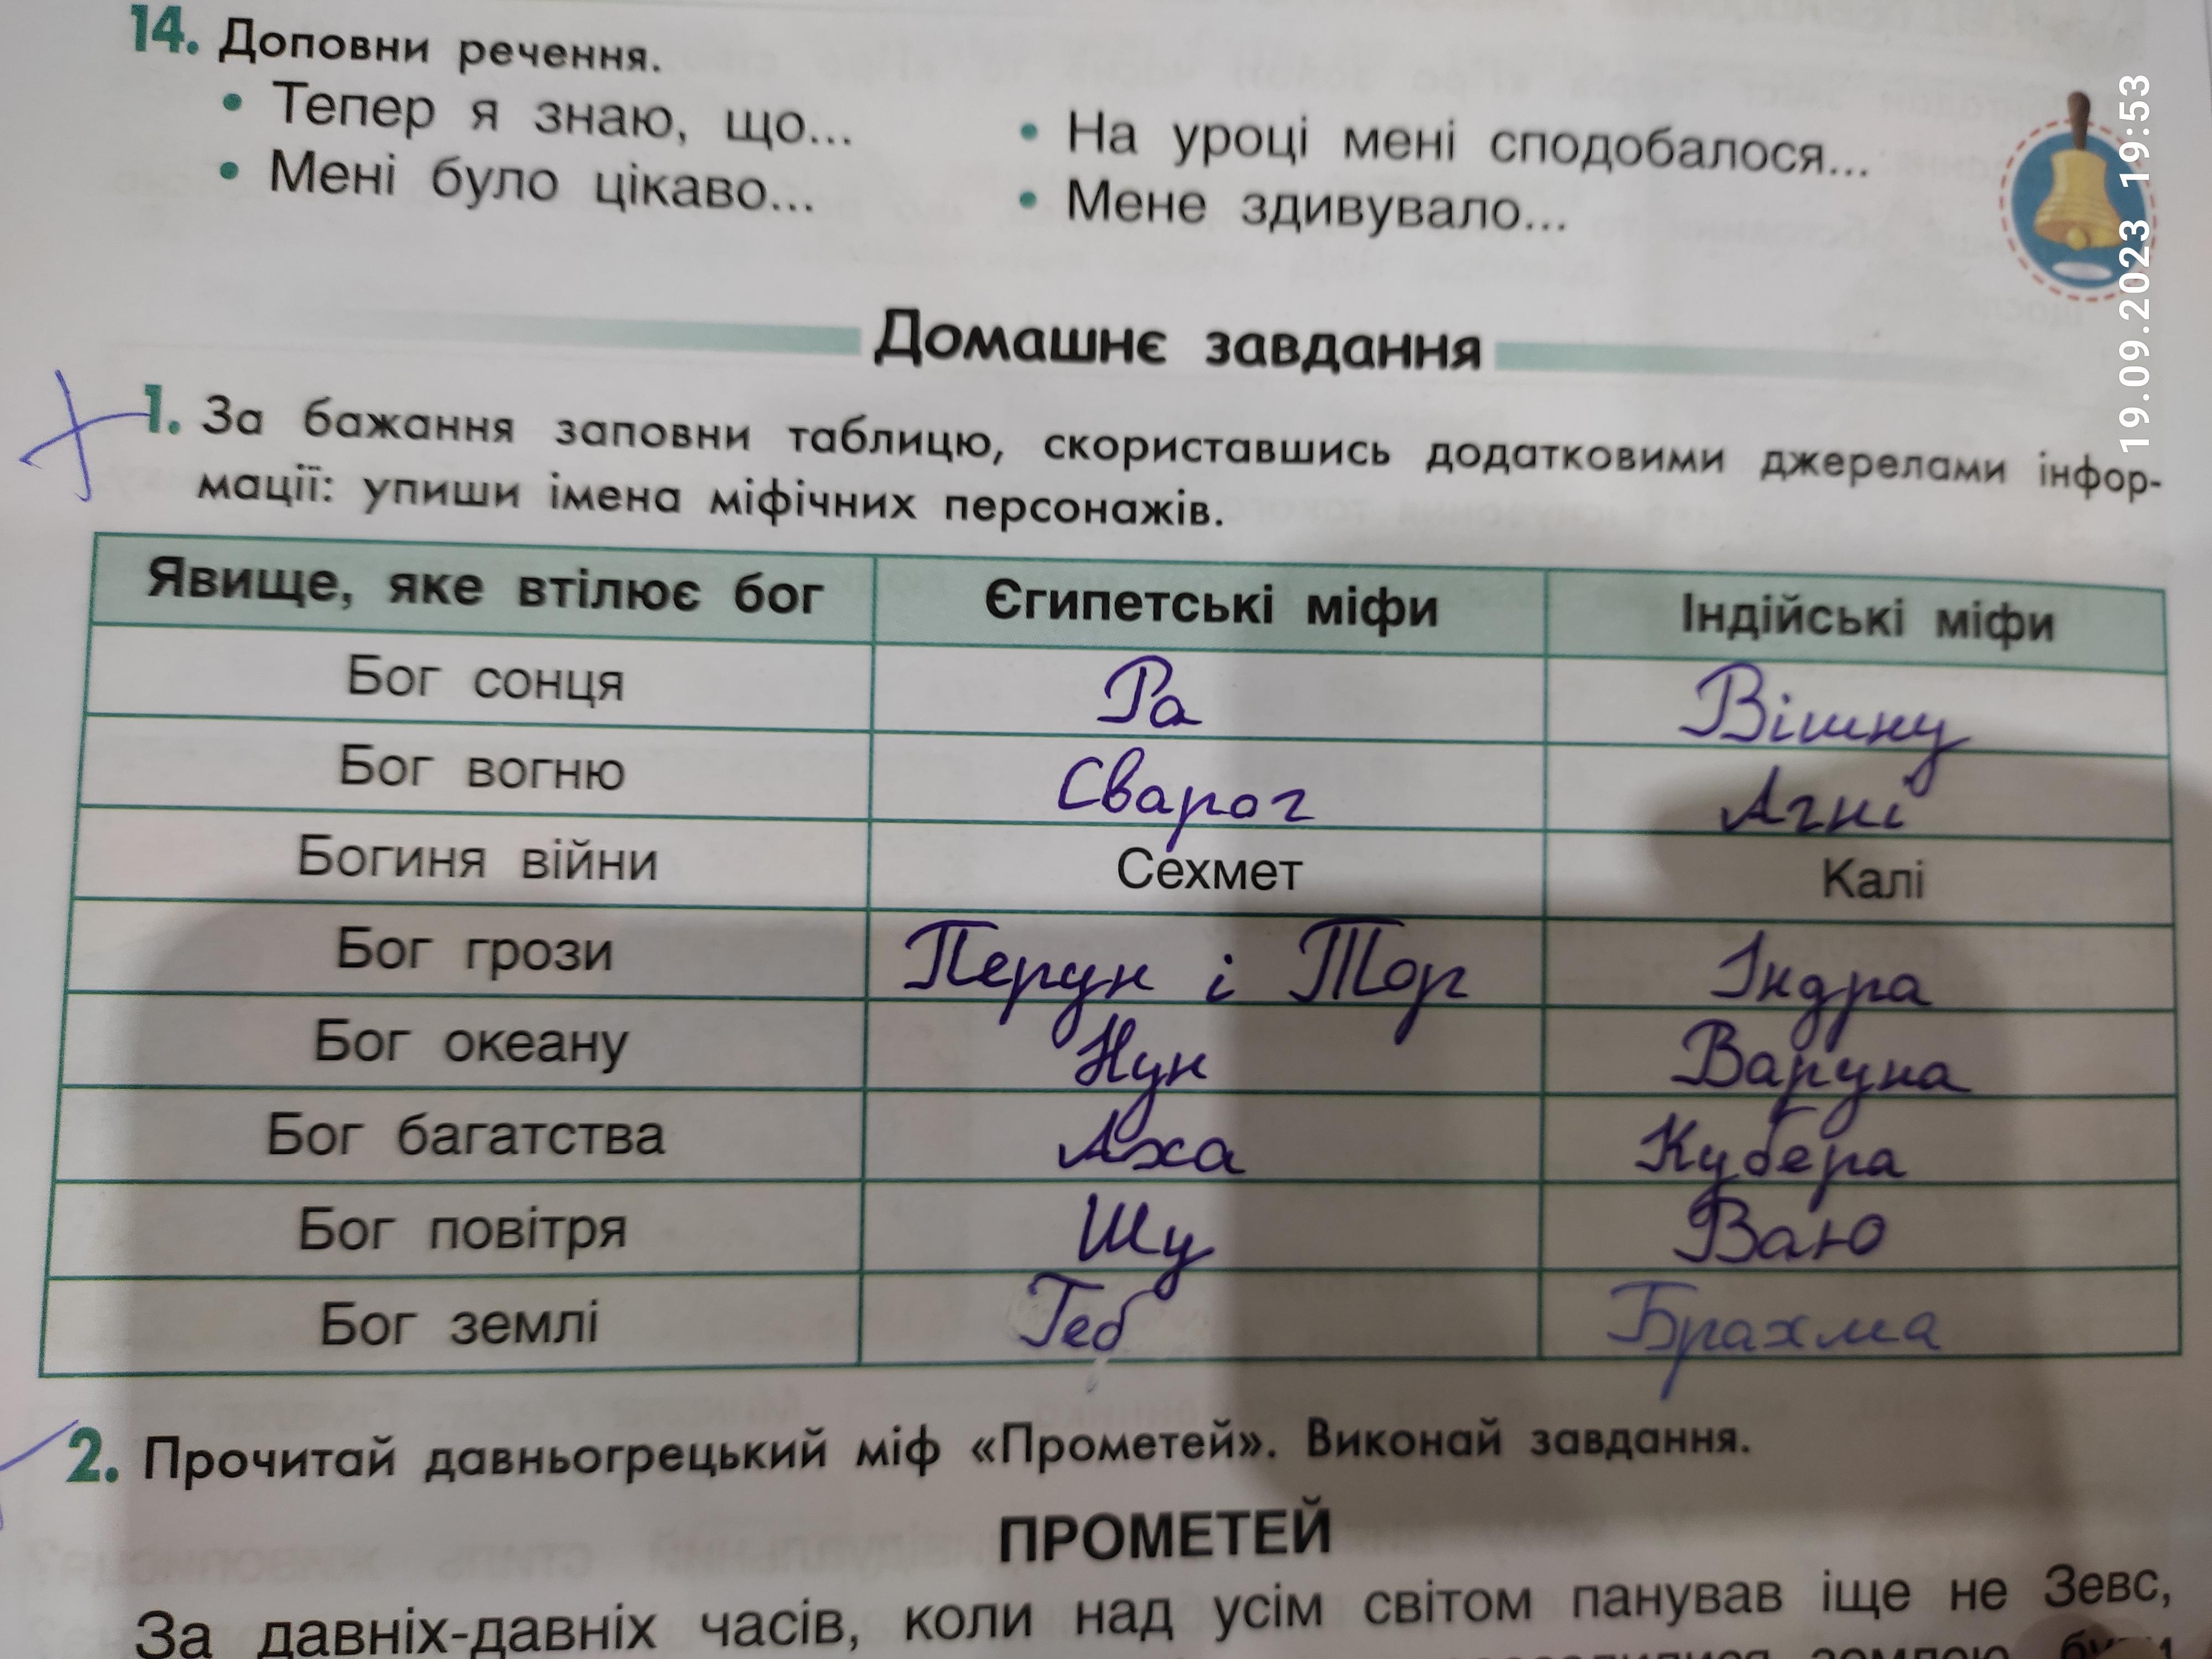 14. Доповни речення.
• Тепер я знаю, що...
• Мені було цікаво...
• На уроці мені сподобалося...
• Мене здивувало...
19.09.2023 19:53
Домашнє завдання
1. За бажання заповни таблицю, скориставшись додатковими джерелами інфор-
мації: упиши імена міфічних персонажів.
Явище, яке втілює бог Єгипетські міфи Індійські міфи
Бог сонця Ра Вішну
Бог вогню Сварог Агні
Богиня війни Сехмет Калі
Бог грози Перун і Тор Індра
Бог океану Нун Варуна
Бог багатства Аха Кубера
Бог повітря Шу Ваю
Бог землі Геб Брахма
2. Прочитай давньогрецький міф «Прометей». Виконай завдання.
ПРОМЕТЕЙ
За давніх-давніх часів, коли над усім світом панував іще не Зевс,
землею